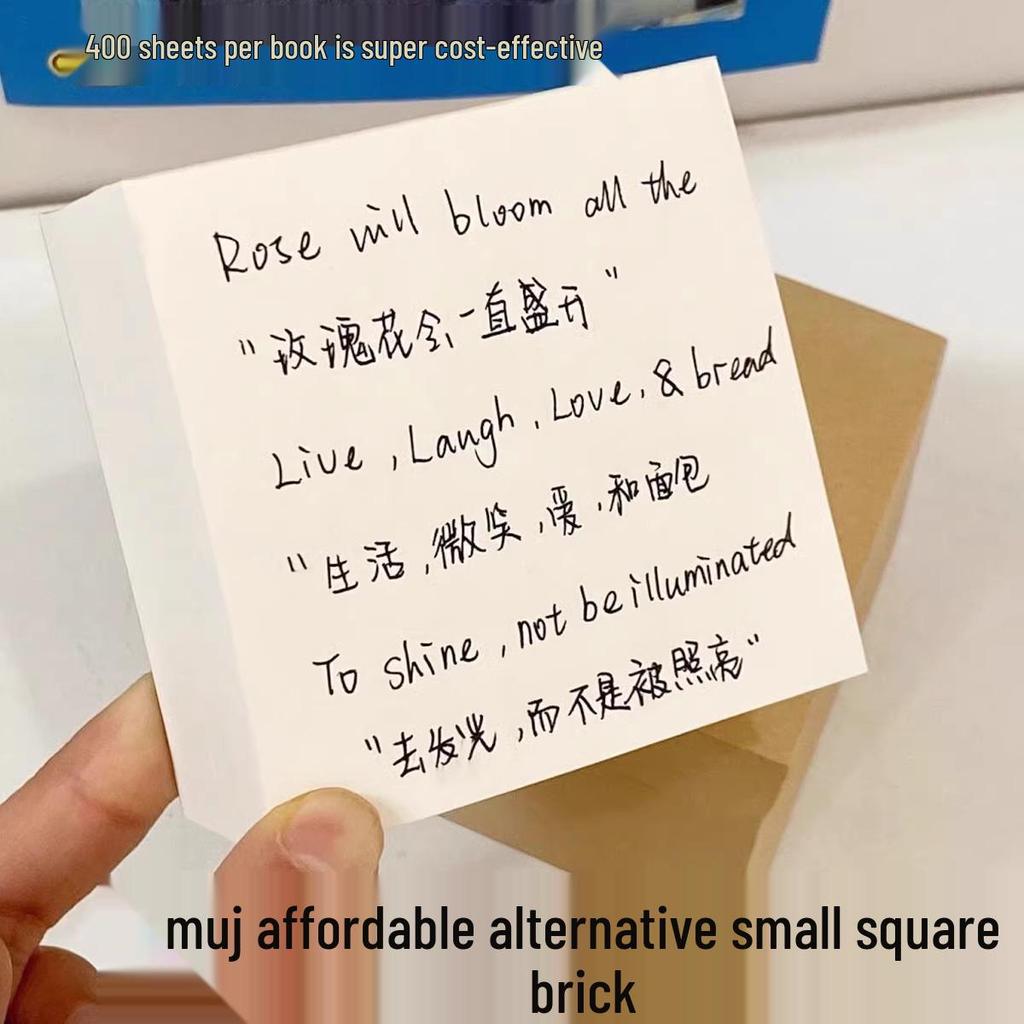 400 sheets per book is super cost-effective
Rose will bloom all the
"玫瑰花会一直盛开"
Live, Laugh, Love, & bread
"生活,微笑,爱,和面包
To shine, not be illuminated
"去发光,而不是被照亮"
muj affordable alternative small square
brick